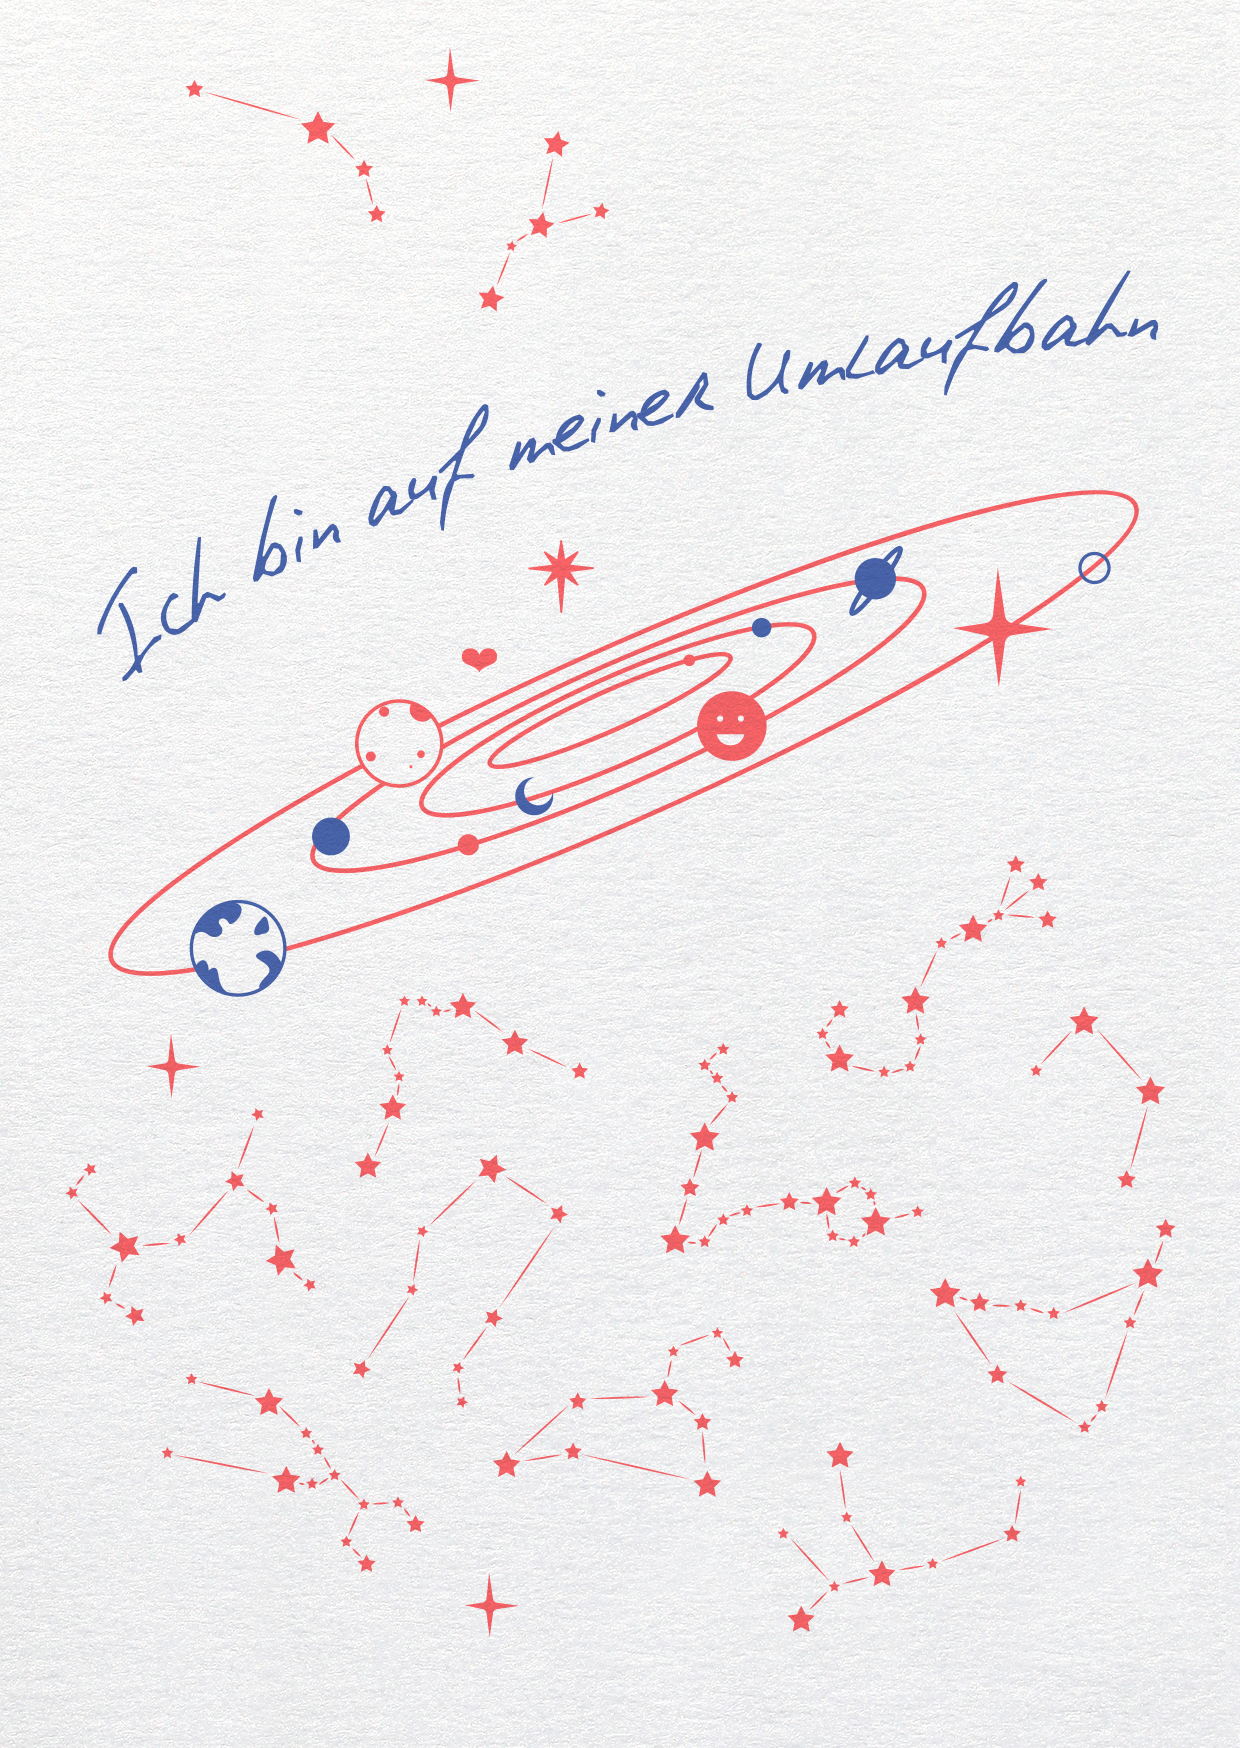 Ich bin auf meiner Umlaufbahn